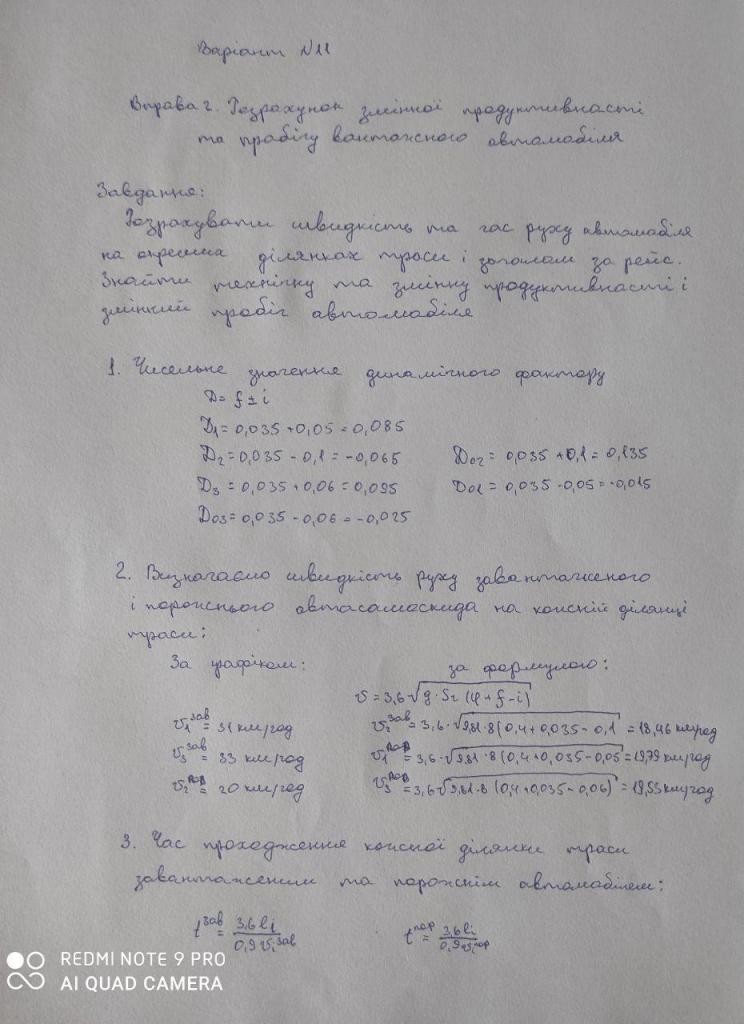 Варіант №11
Вправа 2. Розрахунок змінної продуктивності
та пробігу вантажного автомобіля
Завдання:
Розрахувати швидкість та час руху автомобіля
на окремих ділянках траси і загалом за рейс.
Знайти технічну та змінну продуктивності і
змінний пробіг автомобіля
1. Чисельне значення динамічного фактору
D = f ± i
D₁ = 0,035 + 0,05 = 0,085
D₂ = 0,035 - 0,1 = -0,065 D₀₂ = 0,035 + 0,1 = 0,135
D₃ = 0,035 + 0,06 = 0,095 D₀₁ = 0,035 - 0,05 = -0,015
D₀₃ = 0,035 - 0,06 = -0,025
2. Визначаємо швидкість руху завантаженого
і порожнього автосамоскида на кожній ділянці
траси:
За графіком: за формулою:
v = 3,6 √g·Sг(φ + f - i)
v₁ᶻᵃᵛ = 31 км/год v₂ᶻᵃᵛ = 3,6 · √9,81 · 8(0,4 + 0,035 - 0,1 = 18,46 км/год
v₃ᶻᵃᵛ = 33 км/год v₁ᵖᵒʳ = 3,6 · √9,81 · 8(0,4 + 0,035 - 0,05 = 19,79 км/год
v₂ᵖᵒʳ = 20 км/год v₃ᵖᵒʳ = 3,6 √9,81 · 8 (0,4 + 0,035 - 0,06) = 19,53 км/год
3. Час проходження кожної ділянки траси
завантаженим та порожнім автомобілем:
t^зав = 3,6 li / 0,9 vi^зав t^пор = 3,6 li / 0,9 vi^пор
REDMI NOTE 9 PRO
AI QUAD CAMERA